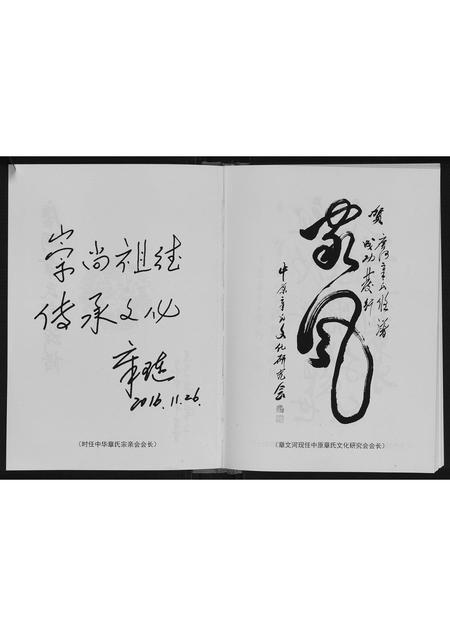 崇尚祖德
传承文化
章琁
2016.11.26.
（时任中华章氏宗亲会会长）
家风
贺
成功发行
中原章氏文化研究会
（章文河现任中原章氏文化研究会会长）